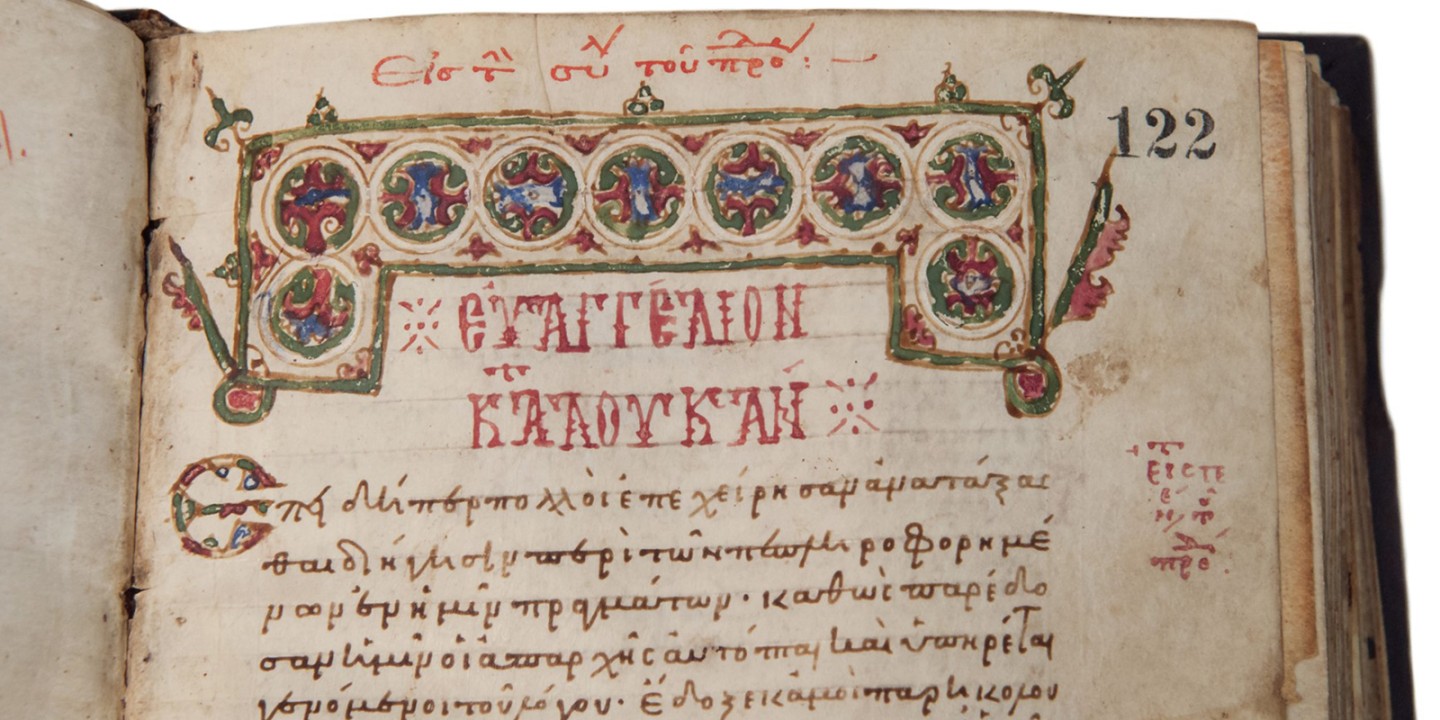 Εἰς τ συ τοῦ προ :
122
※ ΕΥΑΓΓΕΛΙΟΝ
ΚΑΤΑ ΛΟΥΚΑΝ ※
Ἐπειδήπερ πολλοὶ ἐπεχείρησαν ἀνατάξασ
θαι διήγησιν περὶ τῶν πεπληροφορημέ
νων ἐν ἡμῖν πραγμάτων · καθὼς παρέδο
σαν ἡμῖν οἱ ἀπαρχῆς αὐτόπται καὶ ὑπηρέται
γενόμενοι τοῦ λόγου · ἔδοξε κἀμοὶ παρηκολου